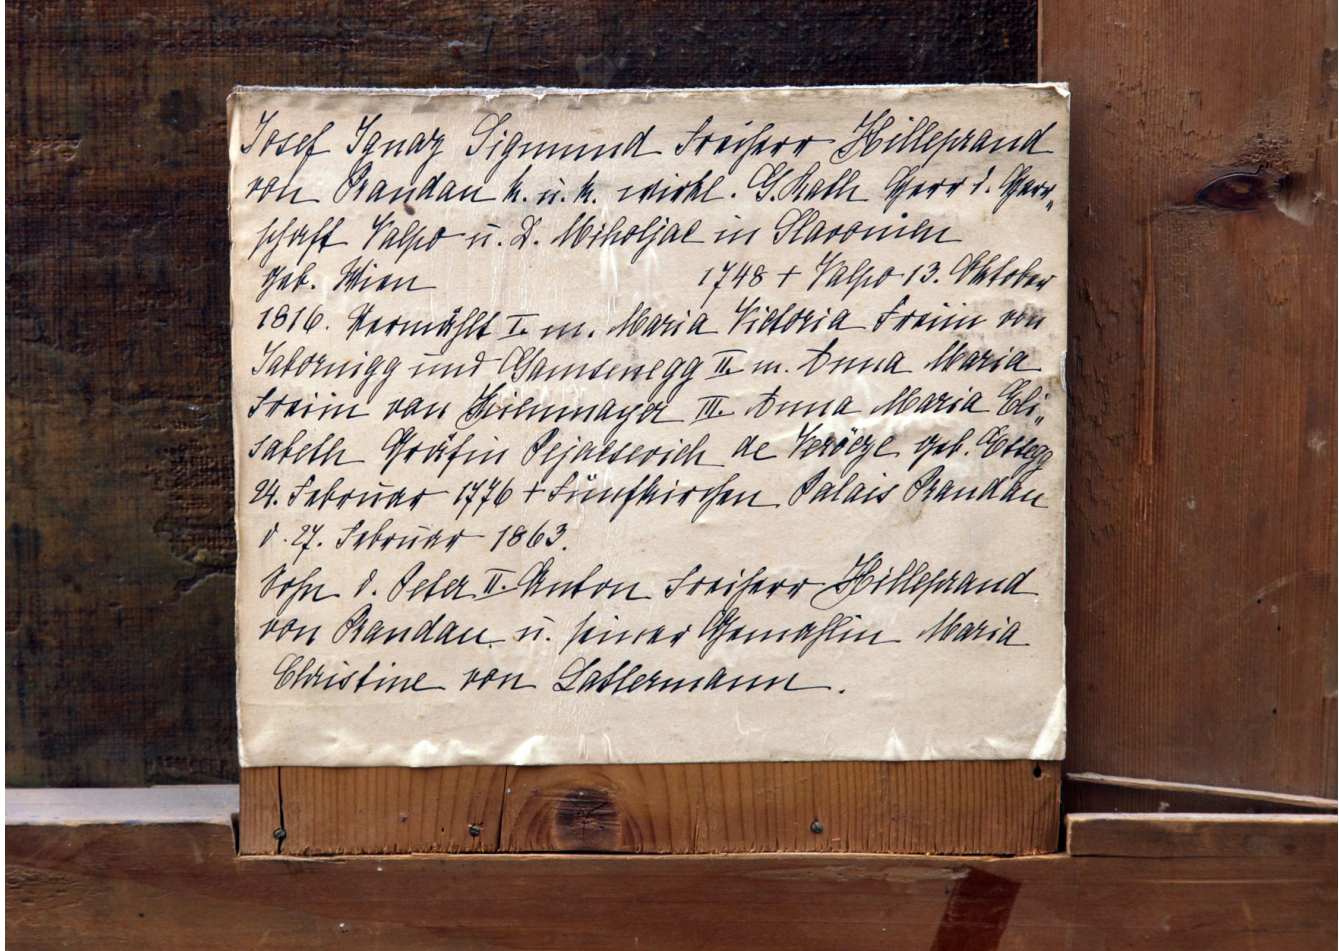 Josef Ignaz Sigmund Freiherr Hilleprand
von Prandau k. u. k. wirkl. G. Rath Herr d. Herr„
schaft Valpo u. D. Miholjac in Slavonien
geb. Wien 1748 + Valpo 13. Oktober
1816. Vermählt I. m. Maria Victoria Freiin von
Jabornigg und Gamsenegg II. m. Anna Maria
Freiin von III. Anna Maria Eli„
sabeth Gräfin Pejacsevich de Verőcze geb. Essegg
24. Februar 1776 + Fünfkirchen Palais Prandau
d. 27. Februar 1863.
Sohn d. Peter II. Anton Freiherr Hilleprand
von Prandau u. seiner Gemahlin Maria
Christine von Lattermann.